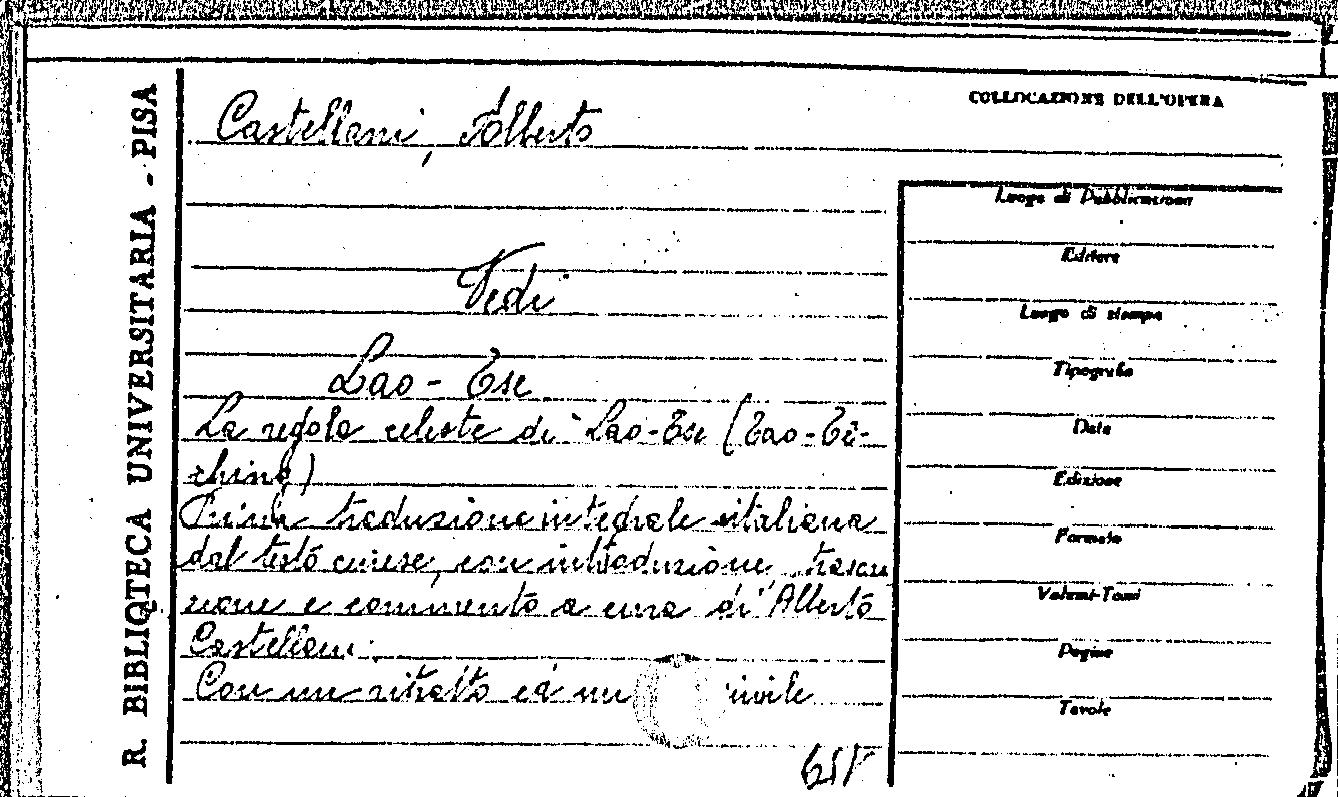 R. BIBLIOTECA UNIVERSITARIA - PISA
COLLOCAZIONE DELL'OPERA
Castellani, Alberto
Vedi
Lao-Tse
La regola celeste di Lao-Tse (Tao-Tê-
ching)
Prima traduzione integrale italiana
dal testo cinese, con introduzione, trascri
zione e commento a cura di Alberto
Castellani.
Con un ritratto ed un
Luogo di Pubblicazione
Editore
Luogo di stampa
Tipografia
Data
Edizione
Formato
Volumi-Tomi
Pagine
Tavole